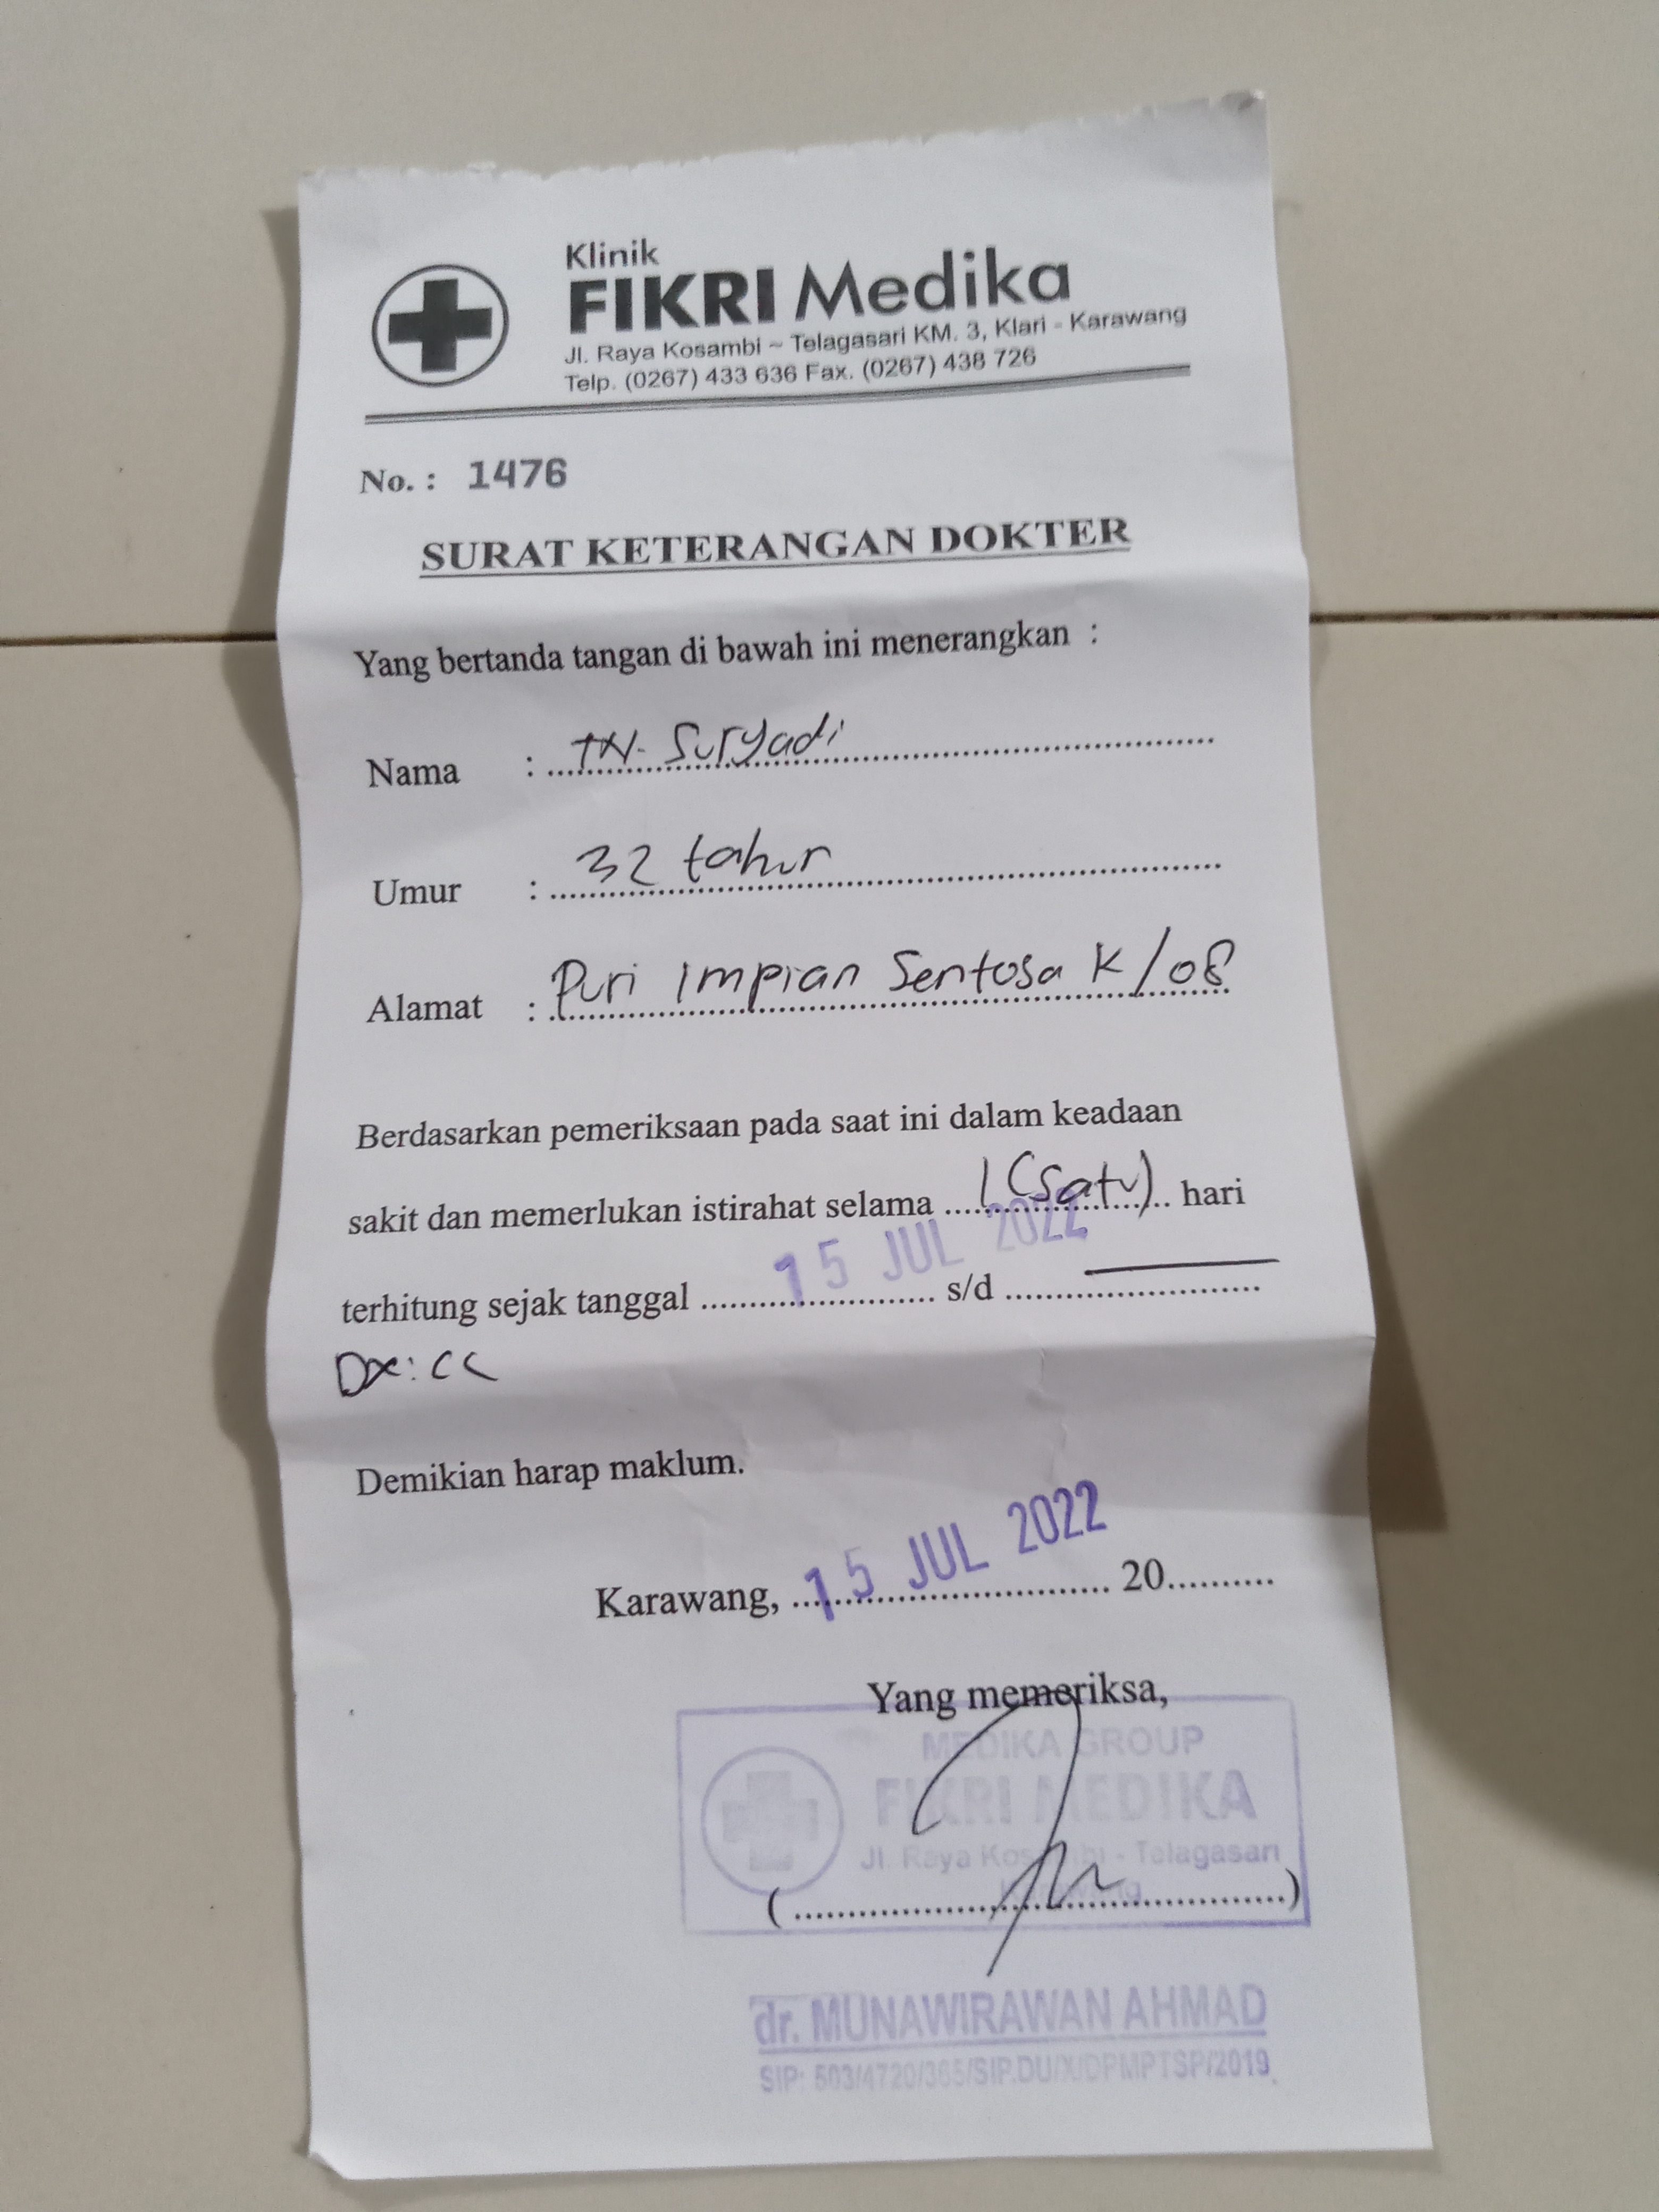 Klinik
FIKRI Medika
Jl. Raya Kosambi ~ Telagasari KM. 3, Klari - Karawang
Telp. (0267) 433 636 Fax. (0267) 438 726
No. : 1476
SURAT KETERANGAN DOKTER
Yang bertanda tangan di bawah ini menerangkan :
Nama : TN. Suryadi
Umur : 32 tahun
Alamat : Puri Impian Sentosa K/08
Berdasarkan pemeriksaan pada saat ini dalam keadaan
sakit dan memerlukan istirahat selama 1 (Satu) hari
terhitung sejak tanggal 15 JUL 2022 s/d —
Dx: CC
Demikian harap maklum.
Karawang, 15 JUL 2022 20
Yang memeriksa,
MEDIKA GROUP
FIKRI MEDIKA
Jl. Raya Kosambi - Telagasari
Karawang
(....................)
dr. MUNAWIRAWAN AHMAD
SIP: 503/4720/365/SIP.DU/X/DPMPTSP/2019